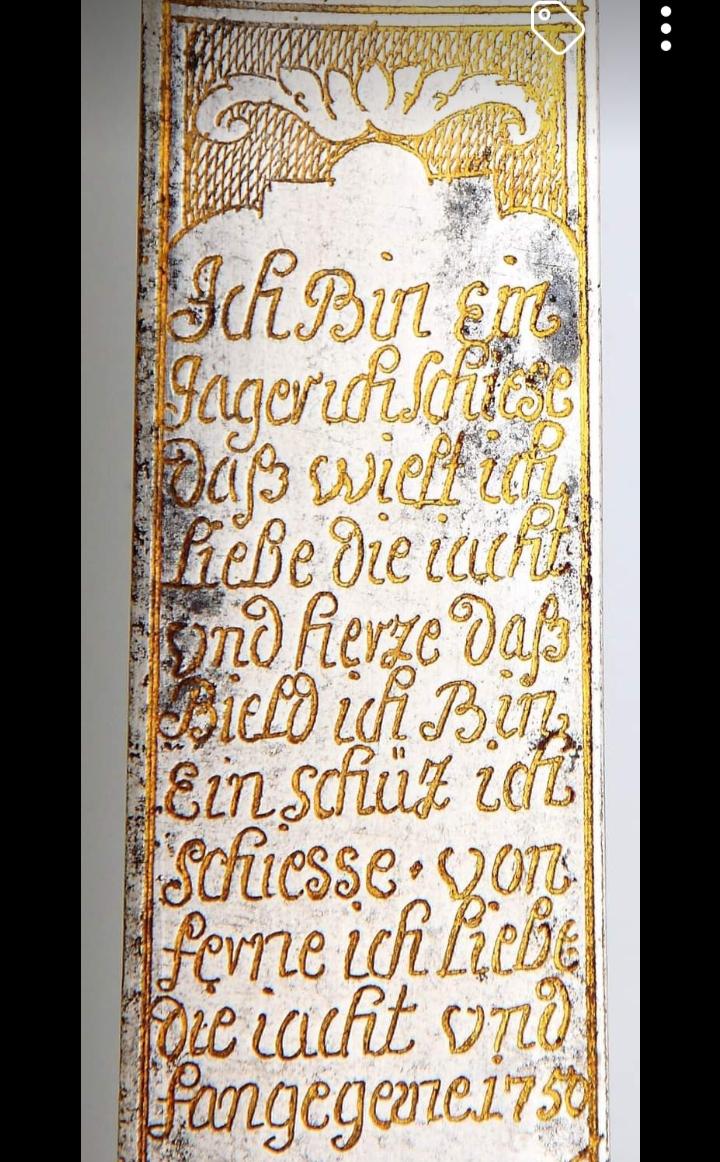 Ich Bin Ein
Jager ich schiese
daß wielt ich
liebe die iacht
und herze daß
Bield ich Bin
Ein schüz ich
schiesse · von
ferne ich liebe
die iacht und
fange gerne 1750